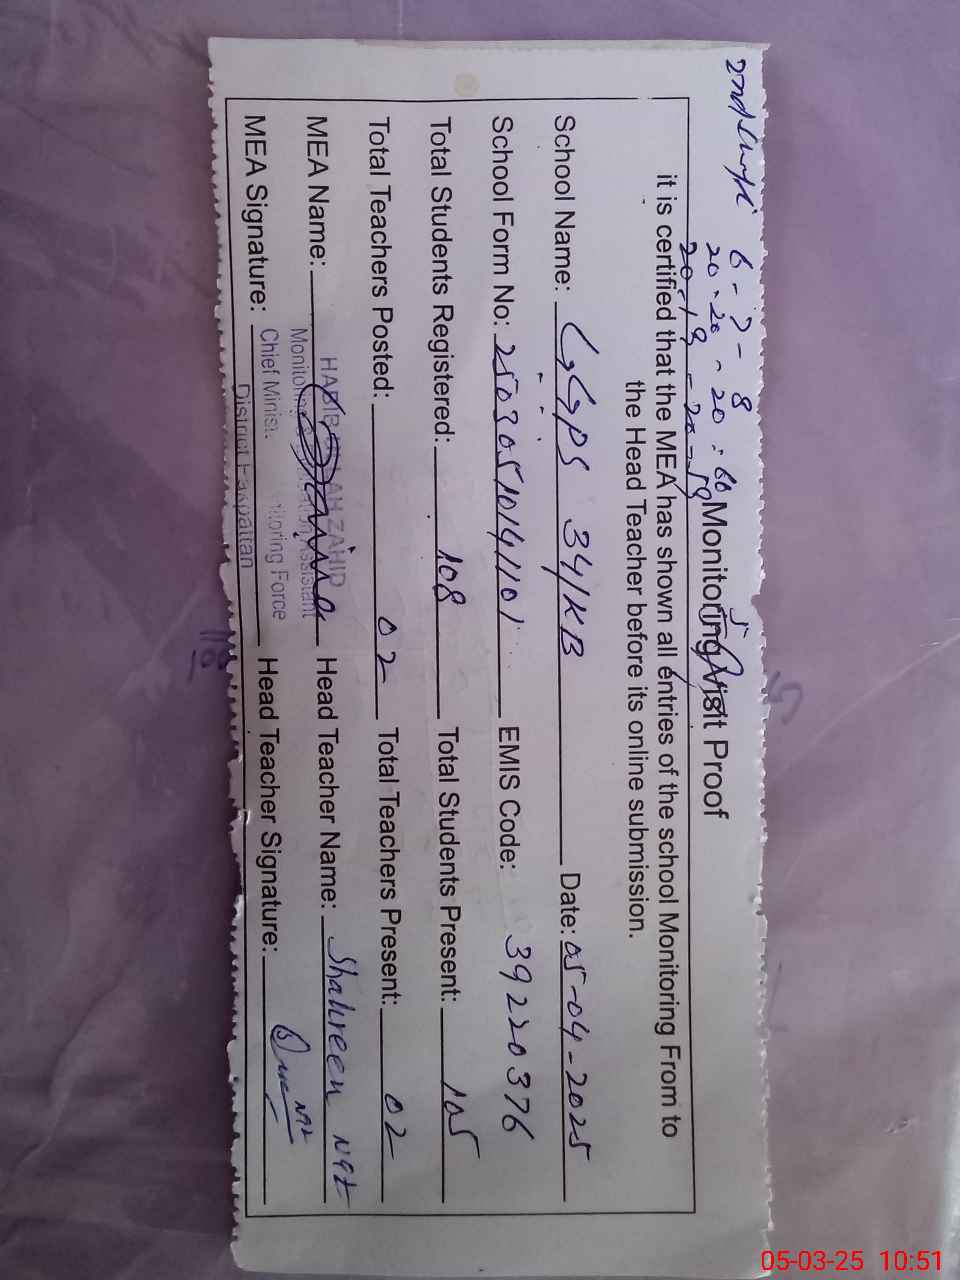 6 - 7 - 8
20 - 20 - 20 = 60
Monitoring Visit Proof
it is certified that the MEA has shown all entries of the school Monitoring From to
the Head Teacher before its online submission.
School Name: GGPS 34/KB Date: 05-04-2025
School Form No: 25030510141101 EMIS Code: 39220376
Total Students Registered: 108 Total Students Present: 105
Total Teachers Posted: 02 Total Teachers Present: 02
MEA Name: Head Teacher Name: Shahreen Naz
HABIB ULLAH ZAHID
Monitoring Assistant
MEA Signature: Head Teacher Signature:
Chief Minist Monitoring Force
District Pakpattan
05-03-25 10:51